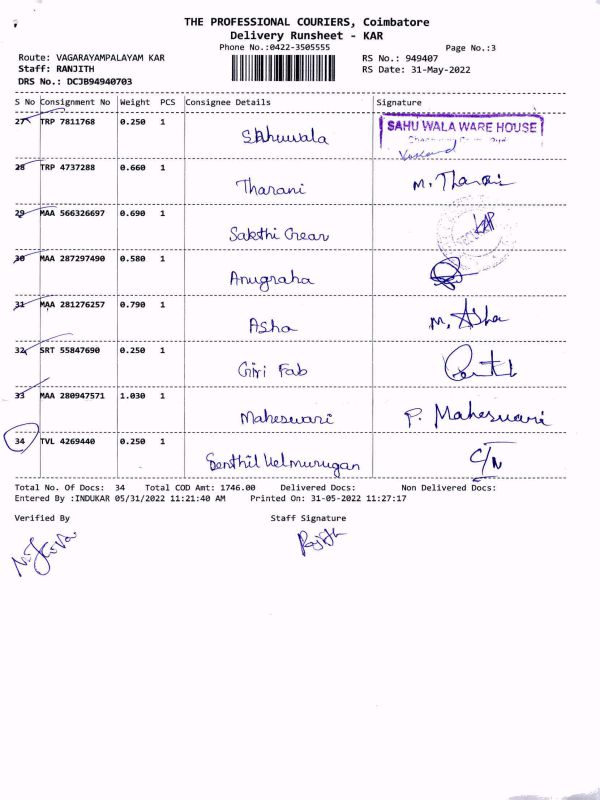 THE PROFESSIONAL COURIERS, Coimbatore
Delivery Runsheet - KAR
Phone No.:0422-3505555
Page No.:3
Route: VAGARAYAMPALAYAM KAR
RS No.: 949407
Staff: RANJITH
RS Date: 31-May-2022
DRS No.: DCJB94940703
S No Consignment No Weight PCS Consignee Details Signature
27 TRP 7811768 0.250 1 Sahuwala SAHU WALA WARE HOUSE
28 TRP 4737288 0.660 1 Tharani M. Tharani
29 MAA 566326697 0.690 1 Sakthi Gear
30 MAA 287297490 0.580 1 Anugraha
31 MAA 281276257 0.790 1 Asha M. Asha
32 SRT 55847690 0.250 1 Giri Fab
33 MAA 280947571 1.030 1 Maheswari P. Maheswari
34 TVL 4269440 0.250 1 Senthil Velmurugan C/N
Total No. Of Docs: 34 Total COD Amt: 1746.00 Delivered Docs: Non Delivered Docs:
Entered By :INDUKAR 05/31/2022 11:21:40 AM Printed On: 31-05-2022 11:27:17
Verified By Staff Signature